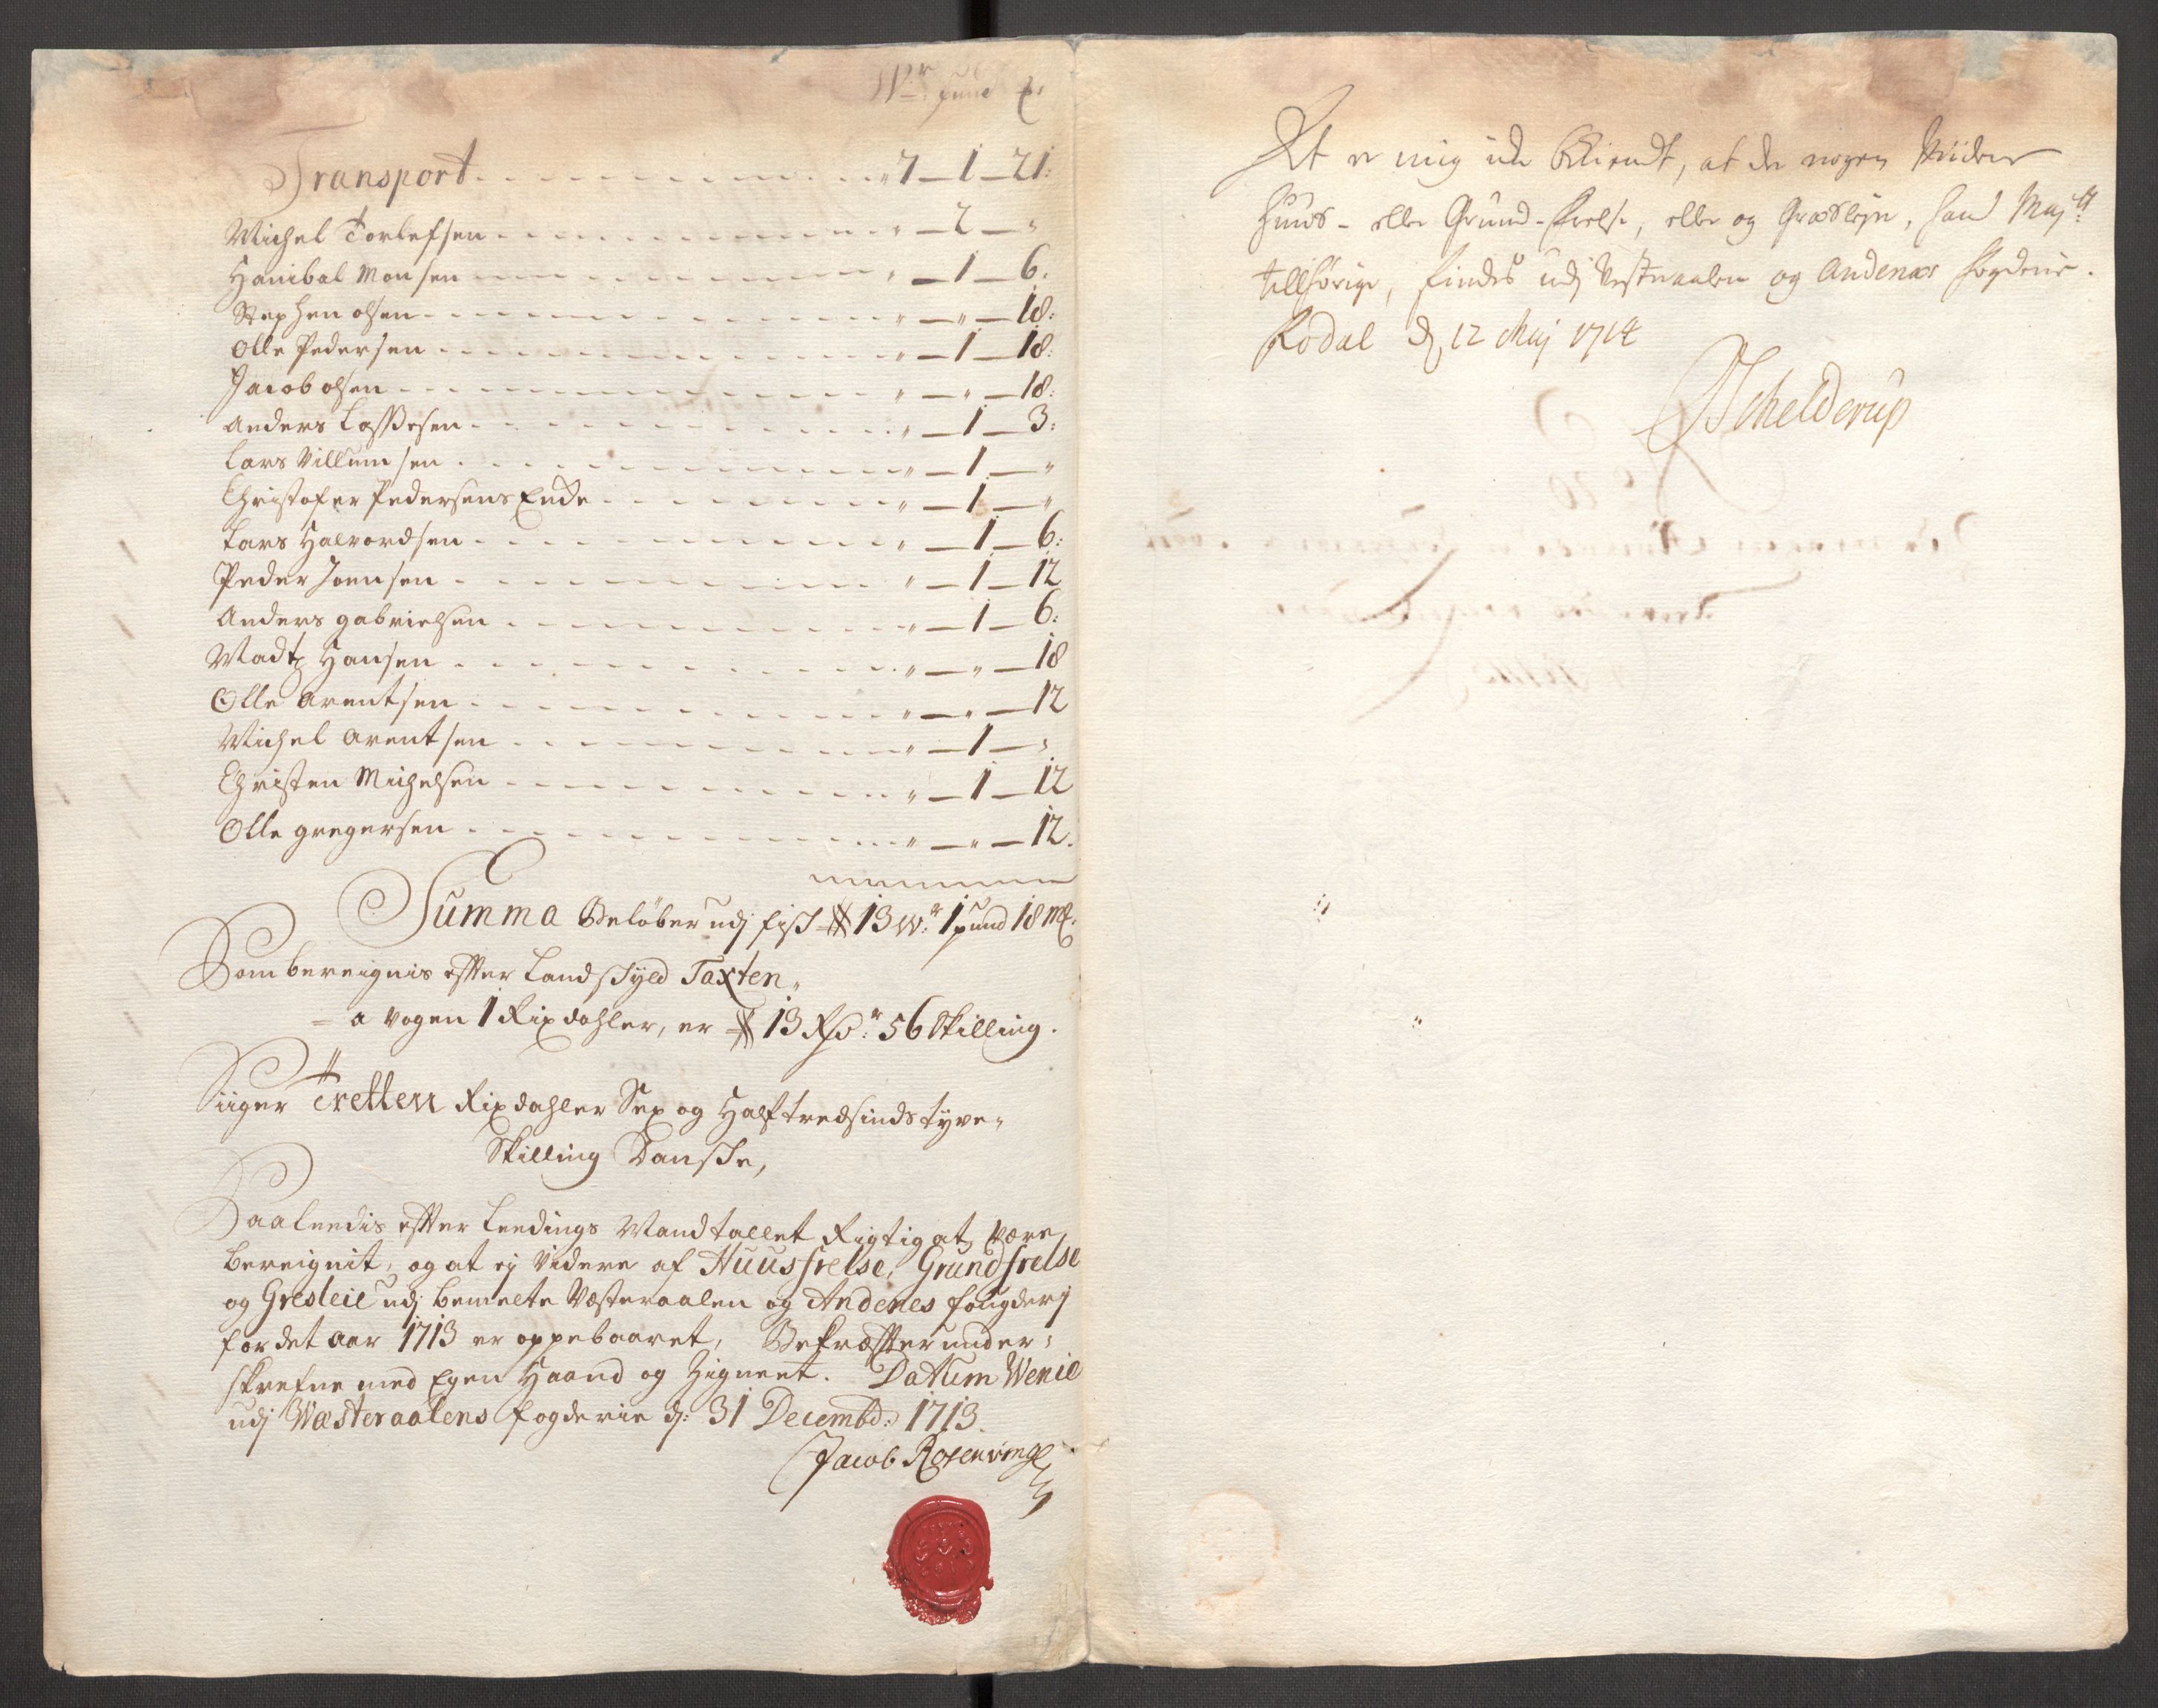 W:r pund
Transport . . . . . . . . . " 7 — 1 — 21:
Michel Torlefsen . . . . . . . . " — 2 — "
Hanibal Monsen . . . . . . . . " — 1 — 6.
Stephen olsen . . . . . . . . " — " — 18:
Olle Pedersen . . . . . . . . " — 1 — 18:
Jacob olsen . . . . . . . . " — " — 18:
Anders Lassesen . . . . . . . . " — 1 — 3:
Lars Villumsen . . . . . . . . " — 1 — "
Christofer Pedersens Encke . . . . . . " — 1 — "
Lars Halvordsen . . . . . . . . " — 1 — 6:
Peder Joensen . . . . . . . . " — 1 — 12
Anders gabrielsen . . . . . . . . " — 1 — 6:
Madtz Hansen . . . . . . . . " — " — 18
Olle Arentsen . . . . . . . . " — " — 12
Michel Arentsen . . . . . . . . " — 1 — "
Christen Michelsen . . . . . . . . " — 1 — 12
Olle gregersen . . . . . . . . " — " — 12.
Summa Beløber udj fisk 13 W:r 1 pund 18 mk:
Som bereignis efter Landskyld Taxten,
= a vogen 1 Rixdahler, er 13 Rd:r 56 Skilling.
Siiger Tretten Rixdahler Sex og Halftredsindstyve,
Skilling Danske,
Saaleedis efter Leedings Mandtallet Rigtig at være
bereignit, og at ej videre af Huusfrelse, Grundfrelse
og Gresleie udj bemelte Væsteraalen og Andenes fougderj
for det aar 1713 er oppebaaret, Bekræfter under:
skrefne med Egen Haand og Zignet. Datum Wenie
udj Wæsteraalens fogderie d: 31 Decembd: 1713.
Jacob Rosenvinge
Det er mig icke Bekiendt, at der nogen Viidere
Huus- eller Grund-frelse, eller og Græsleje, hans Maj:tt
tillhørige, findes udj Vesteraalen og Andenæs fogderie.
Rodal d. 12 Maj 1714
Schelderup